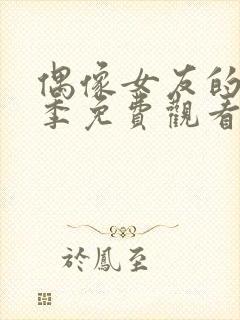 偶像女友的
季免費觀看
於鳳至